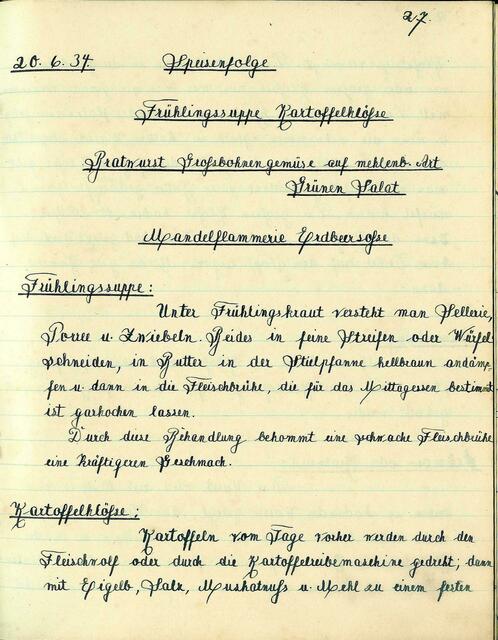 27.
20.6.34. Speisenfolge
Frühlingssuppe Kartoffelklösse
Bratwurst Grossbohnengemüse auf mehlenb. Art
Grünen Salat
Mandelflammerie Erdbeersosse
Frühlingssuppe:
Unter Frühlingskraut versteht man Sellerie,
Porree u. Zwiebeln. Beides in feine Streifen oder Würfel
schneiden, in Butter in der Stielpfanne hellbraun andämp-
fen u. dann in die Fleischbrühe, die für das Mittagessen bestimmt
ist garkochen lassen.
Durch diese Behandlung bekommt eine schwache Fleischbrühe
eine kräftigeren Geschmack.
Kartoffelklösse:
Kartoffeln vom Tage vorher werden durch den
Fleischwolf oder durch die Kartoffelreibemaschine gedreht; dann
mit Eigelb, Salz, Muskatnuss u. Mehl zu einem festen